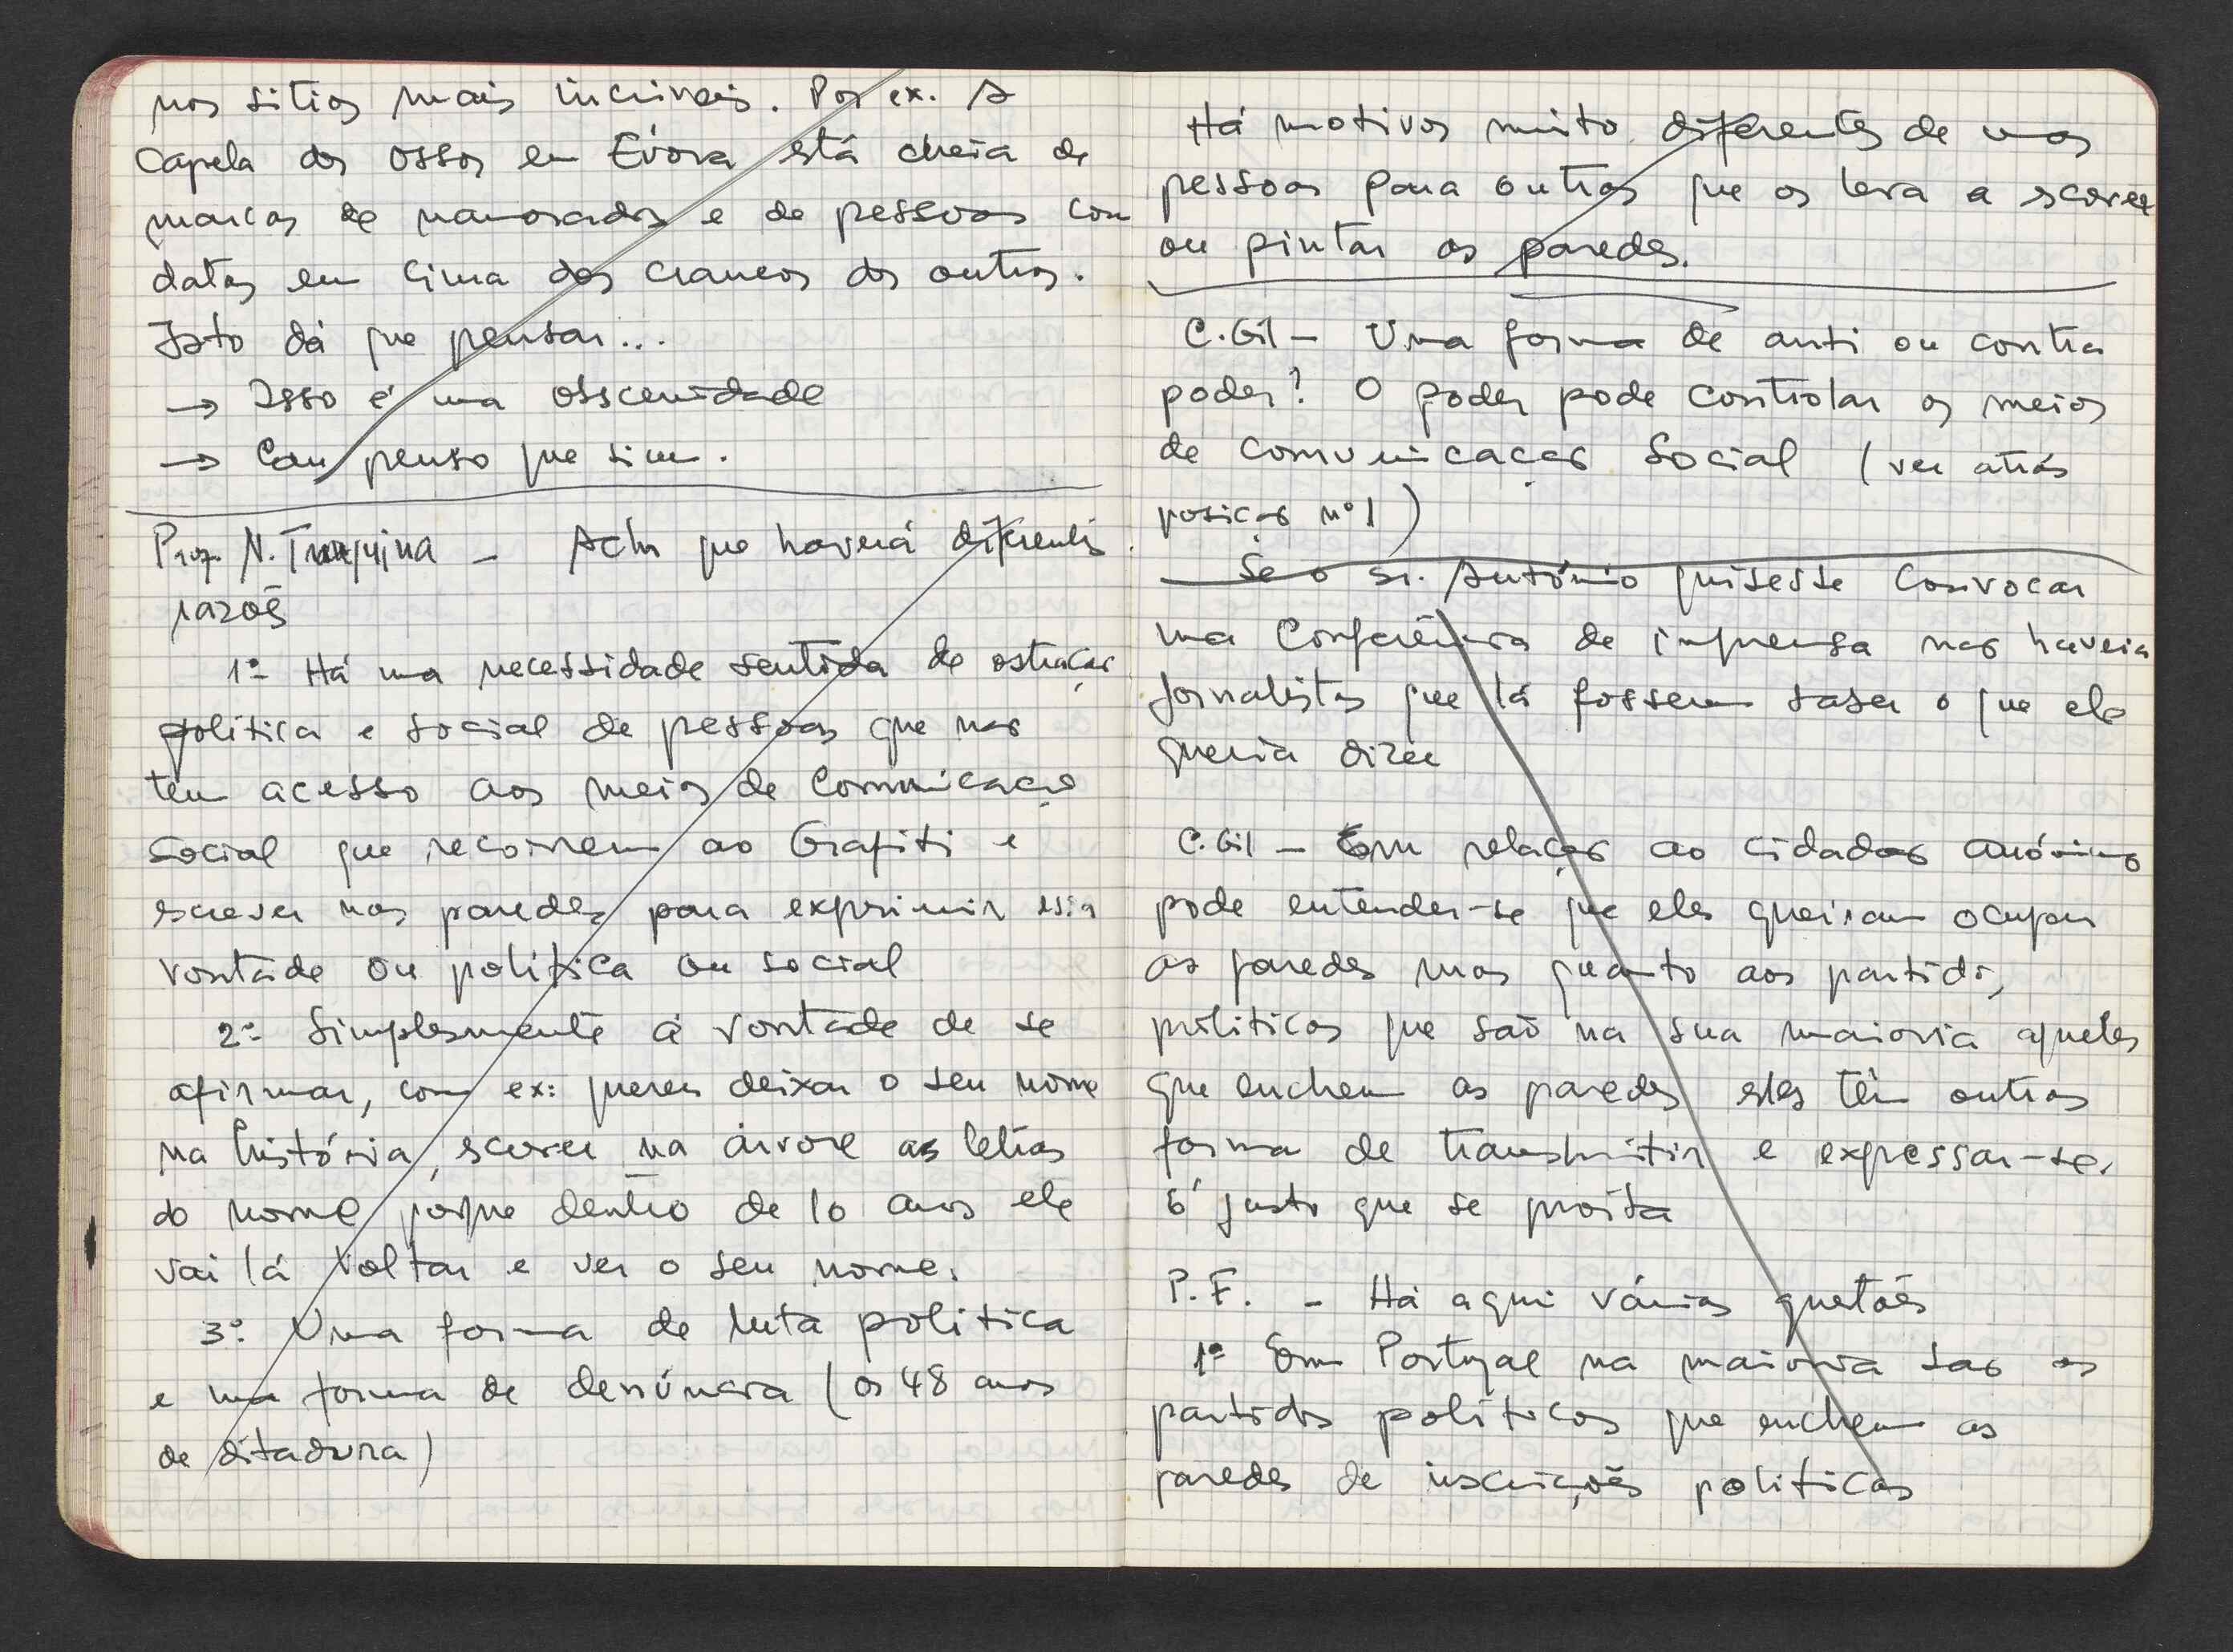 nos sitios mais incriveis. Por ex. A
Capela dos Ossos em Évora está cheia de
marcas de namorados e de pessoas com
datas em cima dos craneos dos outros.
Isto dá que pensar...
→ Isso é uma obscenidade
→ Eu penso que sim.
Prof. N. Traquina - Acho que haverá diferentes
razoẽs
1º Há uma necessidade sentida de
politica e social de pessoas que nao
tem acesso aos meios de Comunicaçao
Social que recorrem ao Grafiti e
escrever nas paredes para exprimir essa
vontade ou politica ou social
2º Simplesmente a vontade de se
afirmar, como ex: querer deixar o seu nome
na história, screver na árvore as letras
do nome porque dentro de 10 anos ele
vai lá voltar e ver o seu nome.
3º Uma forma de luta politica
e uma forma de denúncia (os 48 anos
de ditadura)
Há motivos muito diferentes de umas
pessoas para outras que os leva a screver
ou pintar as paredes.
C.Gil - Uma forma de anti ou contra
poder? O poder pode controlar os meios
de comunicaçao Social (ver atrás
posiçao nº1)
Se o sr. António quisesse convocar
uma Conferência de imprensa nao haveria
jornalistas que lá fossem saber o que ele
queria dizer
C.Gil - Em relaçao ao cidadao anónimo
pode entender-se que eles queiram ocupar
as paredes mas quanto aos partidos
politicos que saõ na sua maioria aqueles
que enchem as paredes eles têm outras
forma de transmitir e expressar-se.
É justo que se proiba
P.F. - Há aqui várias questoẽs
1º Em Portugal na maioria sao os
partidos politicos que enchem as
paredes de inscriçoẽs politicas